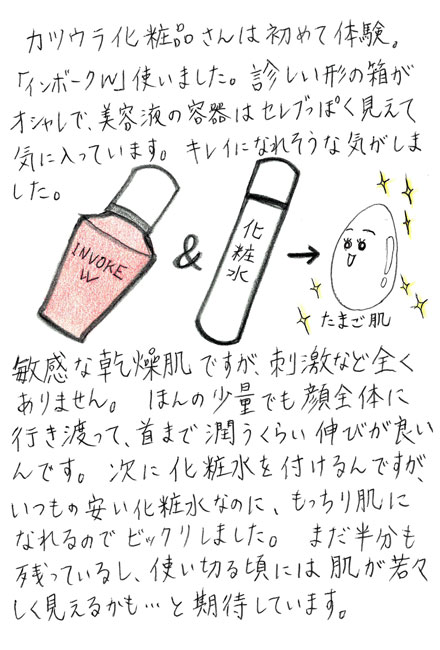 カツウラ化粧品さんは初めて体験。
「インボークW」使いました。診しい形の箱が
オシャレで、美容液の容器はセレブっぽく見えて
気に入っています。キレイになれそうな気がしま
した。
INVOKE
W
&
化粧水
→
たまご肌
敏感な乾燥肌ですが、刺激など全く
ありません。ほんの少量でも顔全体に
行き渡って、首まで潤うくらい伸びが良い
んです。次に化粧水を付けるんですが、
いつもの安い化粧水なのに、もっちり肌に
なれるのでビックリしました。まだ半分も
残っているし、使い切る頃には肌が若々
しく見えるかも…と期待しています。